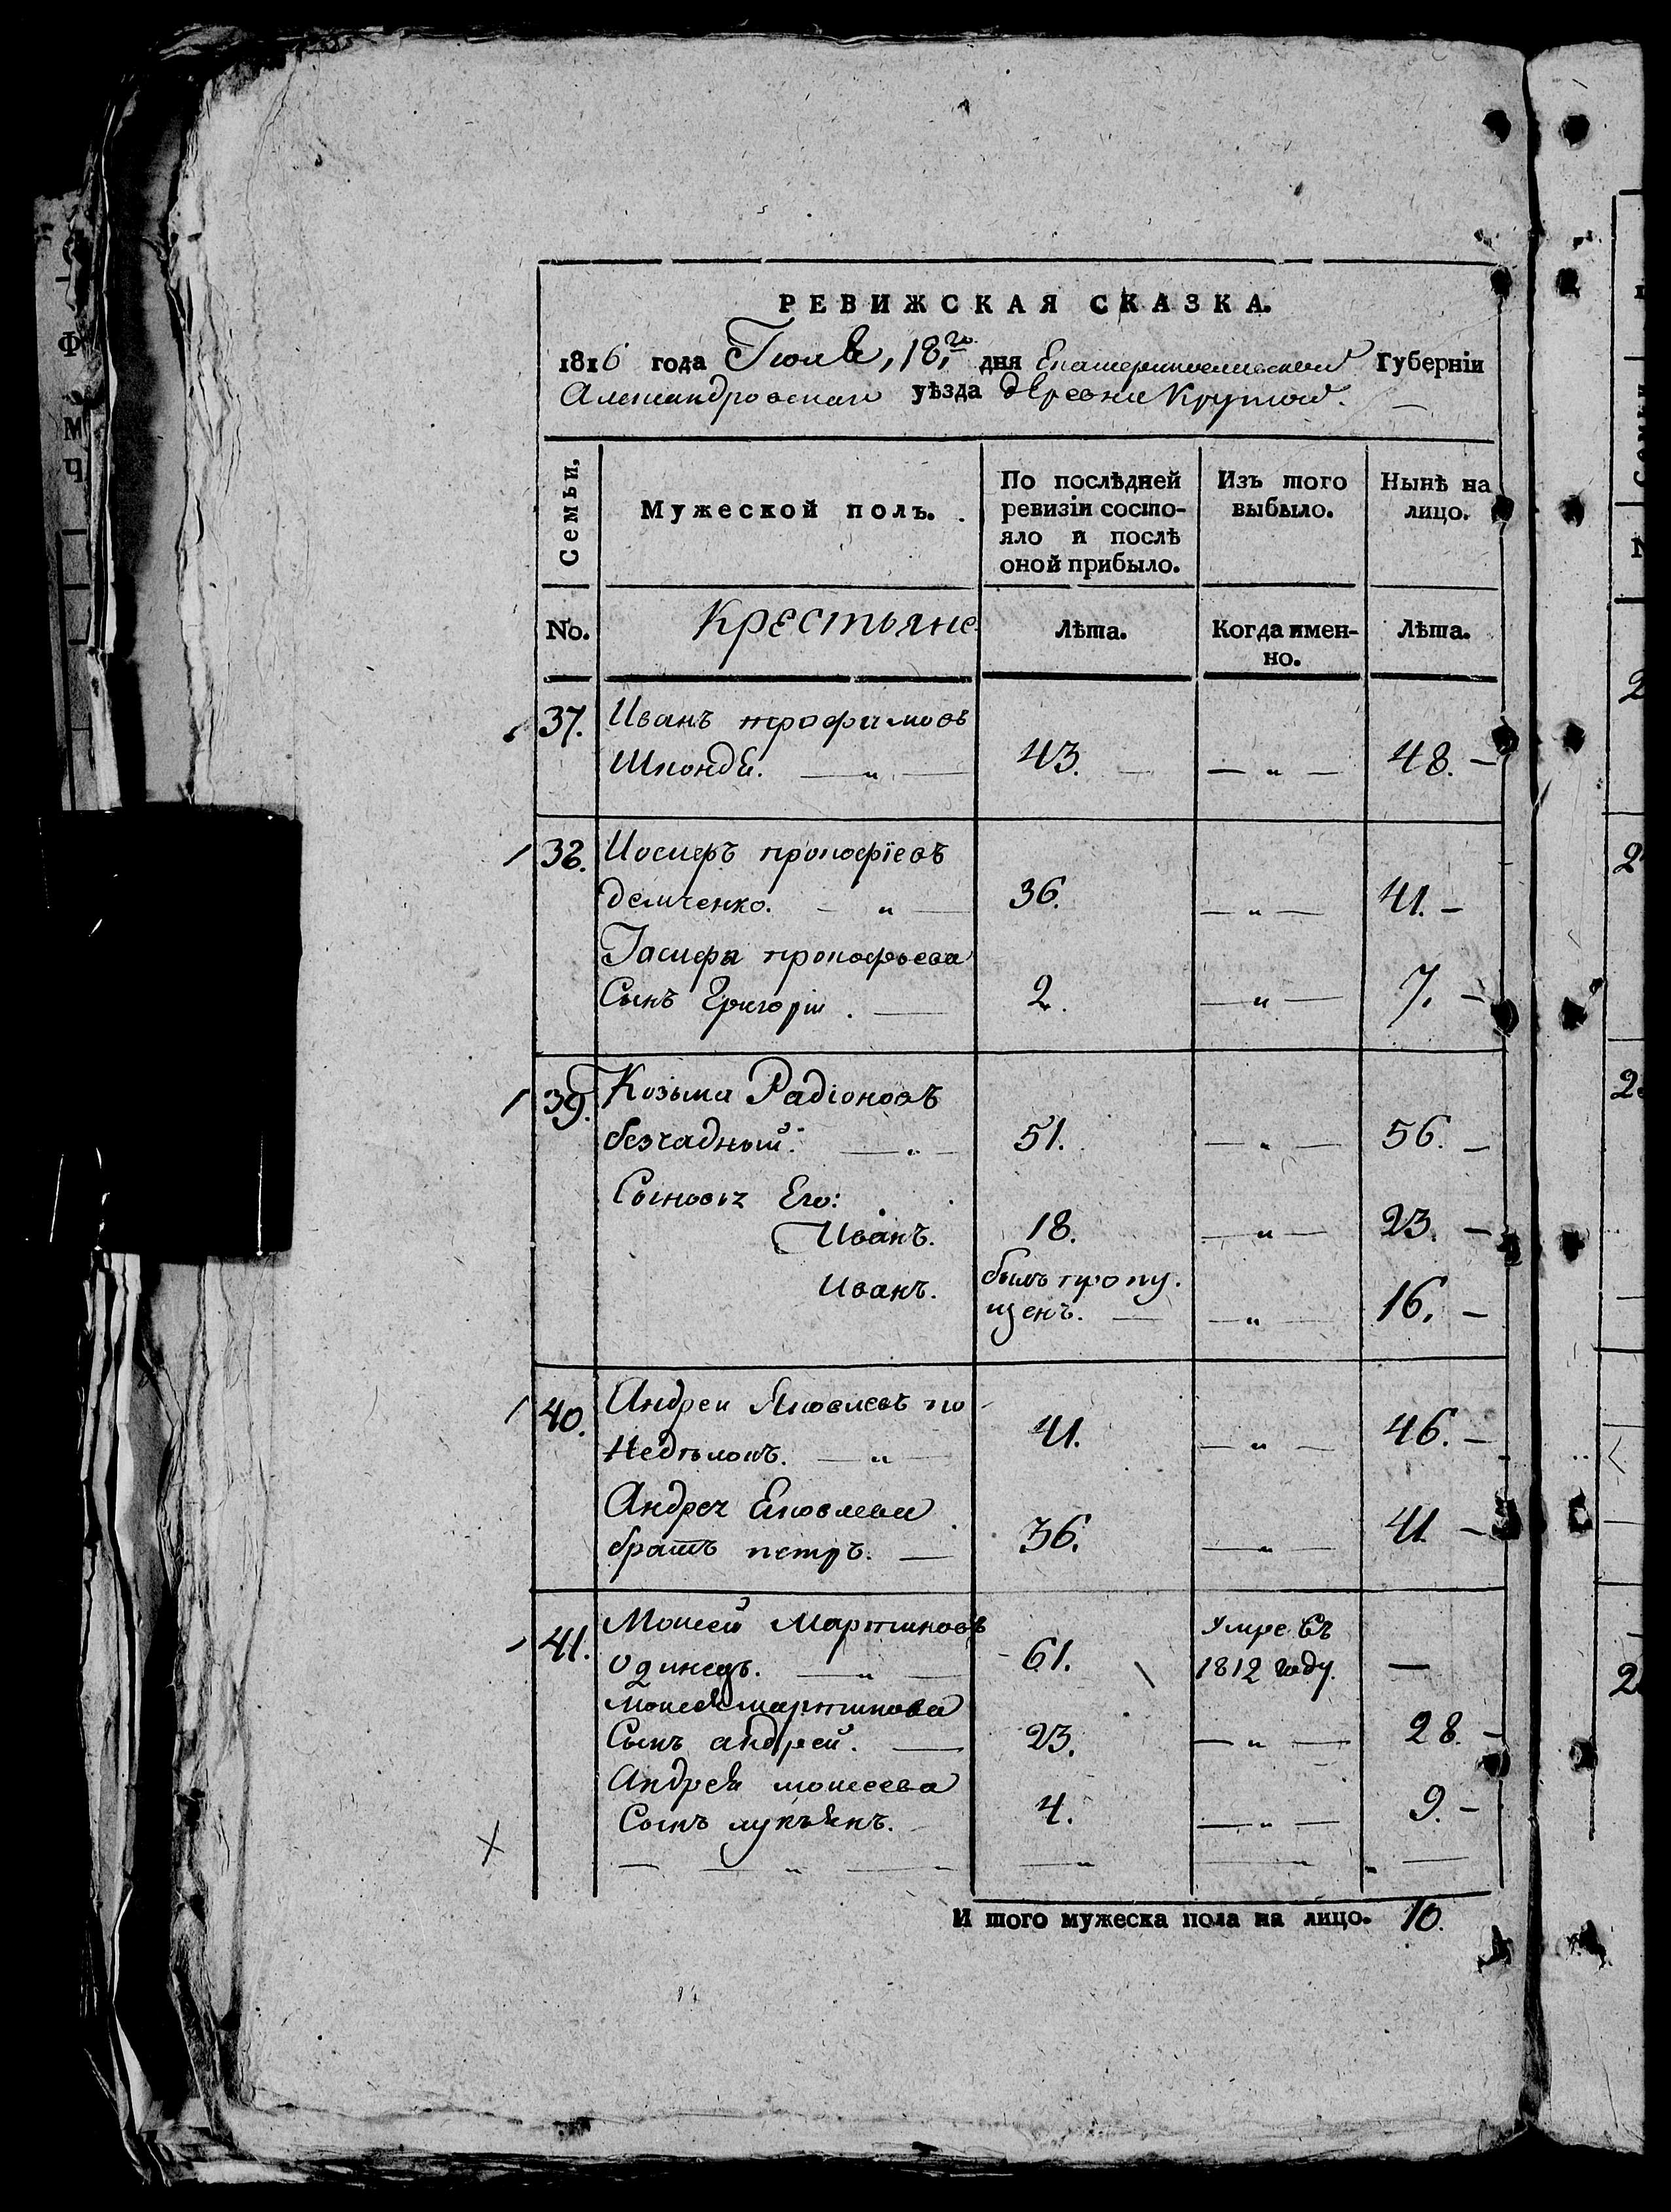 РЕВИЖСКАЯ СКАЗКА.
1816 года Іюля, 18.го дня Екатеринославской Губерніи
Александровскаго уѣзда деревни Крутой.
Семьи,
Мужеской полъ.
По послѣдней ревизіи состо-
яло и послѣ
оной прибыло.
Изъ того
выбыло.
Нынѣ на
лицо.
No.
Крестьяне
Лѣта.
Когда имен-
но.
Лѣта.
37. Иванъ трофимовъ
Шконда. 43. 48.
38. Иосифъ прокофіевъ
демченко. 36. 41.
Іосифа прокофьева
Сынъ Григоріи. 2. 7.
39. Козьма Радіоновъ
безчадный. 51. 56.
Сыновья Его:
Иванъ. 18. 23.
Иванъ. былъ пропу.
щенъ. 16.
40. Андреи Яковлевъ по
Недѣлокъ. 41. 46.
Андрея Яковлева
братъ петръ. 36. 41
41. Моисей Мартиновъ
одинецъ. 61. Умре въ
1812 году.
Моисея мартинова
Сынъ андрей. 23. 28.
Андрея моисеева
Сынъ лукъянъ. 4. 9.
И того мужеска пола на лицо. 10.